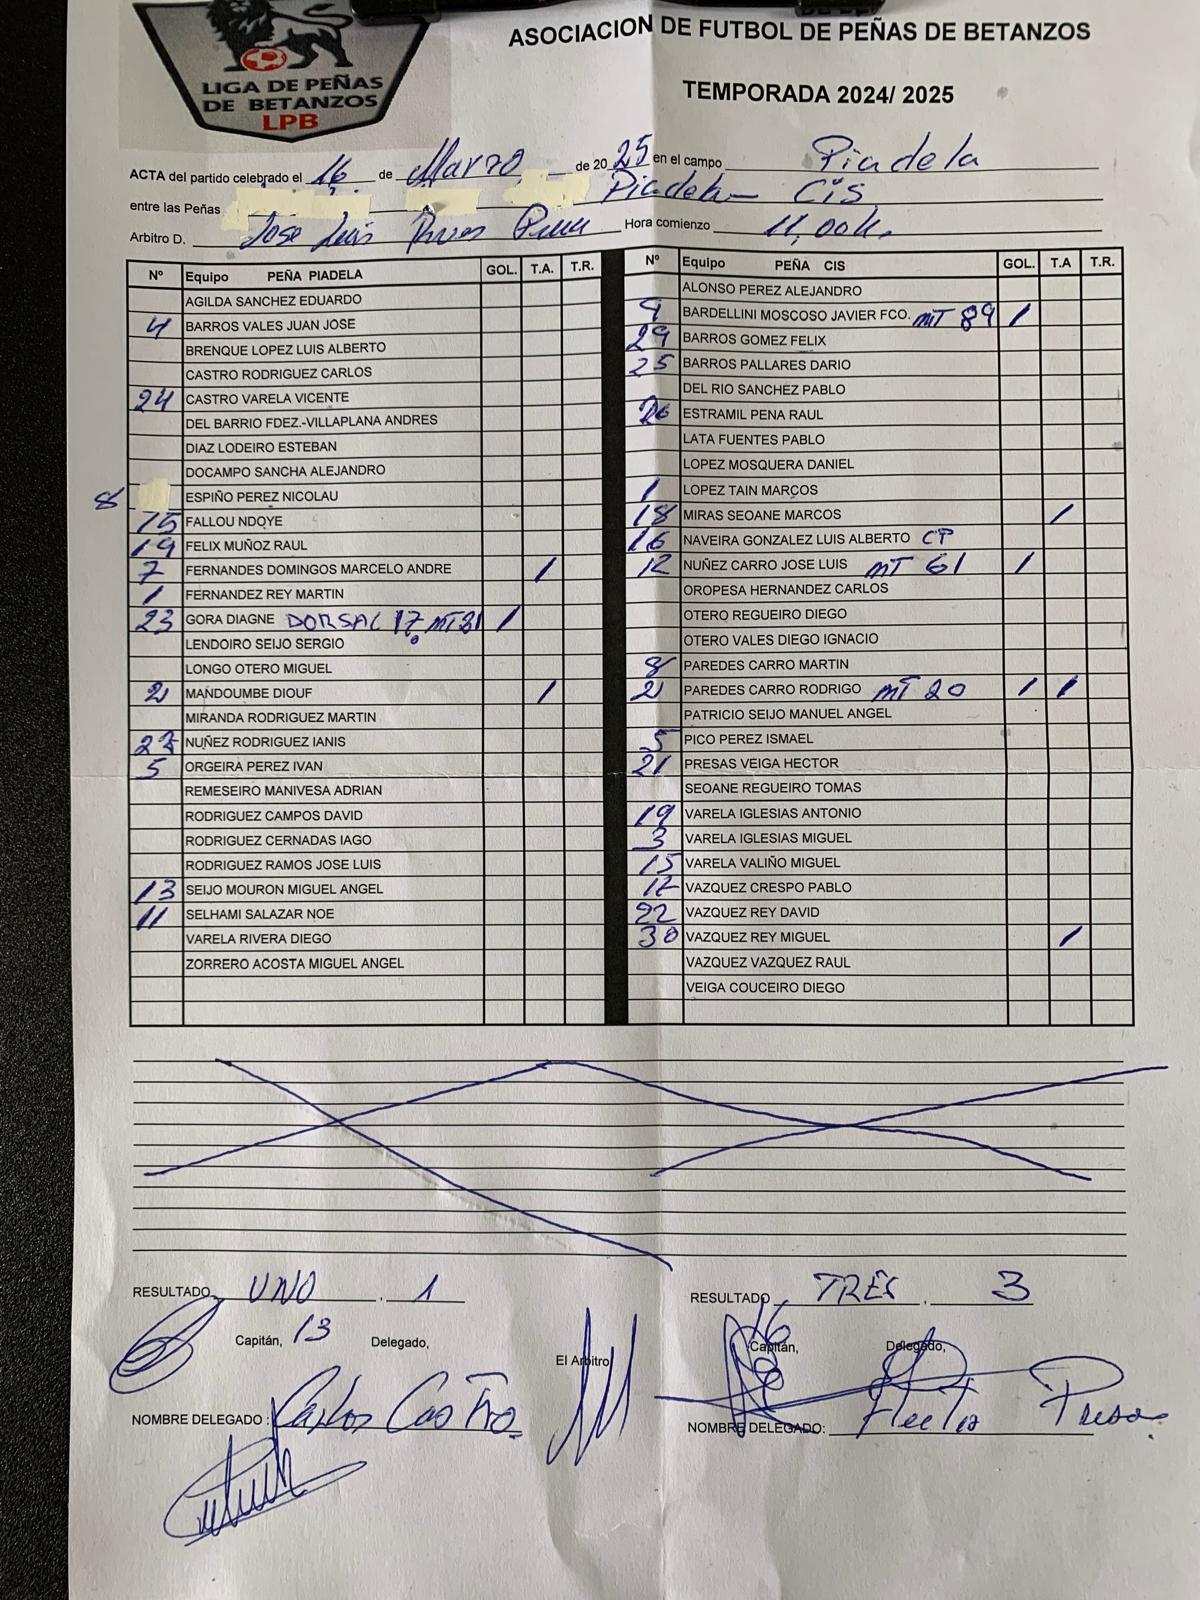 ASOCIACION DE FUTBOL DE PEÑAS DE BETANZOS
LIGA DE PEÑAS
DE BETANZOS
LPB
TEMPORADA 2024/ 2025
ACTA del partido celebrado el 16 de Marzo de 2025 en el campo Piadela
entre las Peñas Piadela - Cis
Arbitro D. Jose Luis Hora comienzo 11,00h.
Nº Equipo PEÑA PIADELA GOL. T.A. T.R.
AGILDA SANCHEZ EDUARDO
4 BARROS VALES JUAN JOSE
BRENQUE LOPEZ LUIS ALBERTO
CASTRO RODRIGUEZ CARLOS
24 CASTRO VARELA VICENTE
DEL BARRIO FDEZ.-VILLAPLANA ANDRES
DIAZ LODEIRO ESTEBAN
DOCAMPO SANCHA ALEJANDRO
8 ESPIÑO PEREZ NICOLAU
15 FALLOU NDOYE
19 FELIX MUÑOZ RAUL
7 FERNANDES DOMINGOS MARCELO ANDRE /
1 FERNANDEZ REY MARTIN
23 GORA DIAGNE DORSAL 17 MT 81 /
LENDOIRO SEIJO SERGIO
LONGO OTERO MIGUEL
2 MANDOUMBE DIOUF /
MIRANDA RODRIGUEZ MARTIN
NUÑEZ RODRIGUEZ IANIS
5 ORGEIRA PEREZ IVAN
REMESEIRO MANIVESA ADRIAN
RODRIGUEZ CAMPOS DAVID
RODRIGUEZ CERNADAS IAGO
RODRIGUEZ RAMOS JOSE LUIS
13 SEIJO MOURON MIGUEL ANGEL
11 SELHAMI SALAZAR NOE
VARELA RIVERA DIEGO
ZORRERO ACOSTA MIGUEL ANGEL
Nº Equipo PEÑA CIS GOL. T.A T.R.
ALONSO PEREZ ALEJANDRO
9 BARDELLINI MOSCOSO JAVIER FCO. MT 89 /
29 BARROS GOMEZ FELIX
25 BARROS PALLARES DARIO
DEL RIO SANCHEZ PABLO
26 ESTRAMIL PENA RAUL
LATA FUENTES PABLO
LOPEZ MOSQUERA DANIEL
1 LOPEZ TAIN MARCOS
18 MIRAS SEOANE MARCOS /
16 NAVEIRA GONZALEZ LUIS ALBERTO CP
12 NUÑEZ CARRO JOSE LUIS MT 61 /
OROPESA HERNANDEZ CARLOS
OTERO REGUEIRO DIEGO
OTERO VALES DIEGO IGNACIO
8 PAREDES CARRO MARTIN
2 PAREDES CARRO RODRIGO MT 20 / /
PATRICIO SEIJO MANUEL ANGEL
5 PICO PEREZ ISMAEL
21 PRESAS VEIGA HECTOR
SEOANE REGUEIRO TOMAS
19 VARELA IGLESIAS ANTONIO
3 VARELA IGLESIAS MIGUEL
15 VARELA VALIÑO MIGUEL
VAZQUEZ CRESPO PABLO
22 VAZQUEZ REY DAVID
30 VAZQUEZ REY MIGUEL /
VAZQUEZ VAZQUEZ RAUL
VEIGA COUCEIRO DIEGO
RESULTADO UNO . 1
RESULTADO TRES . 3
Capitán, 13 Delegado,
El Arbitro
16 Capitán, Delegado,
NOMBRE DELEGADO : Carlos Castro
NOMBRE DELEGADO: Hector Presas